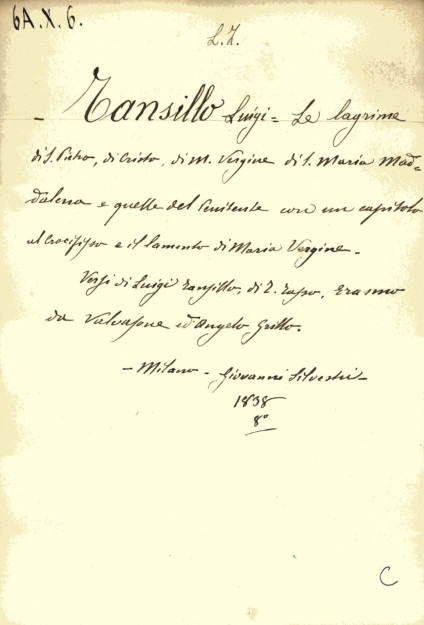 6A.X.6.
L.I.
- Tansillo Luigi = Le lagrime
di S. Pietro, di Cristo, di M. Vergine di S. Maria Mad=
dalena e quelle del Penitente con un capitolo
al Crocifisso e il lamento di Maria Vergine -
Versi di Luigi Tansillo, di T. Tasso, Erasmo
da Valvasone ed Angelo Grillo.
- Milano - Giovanni Silvestri -
1838
8º
C